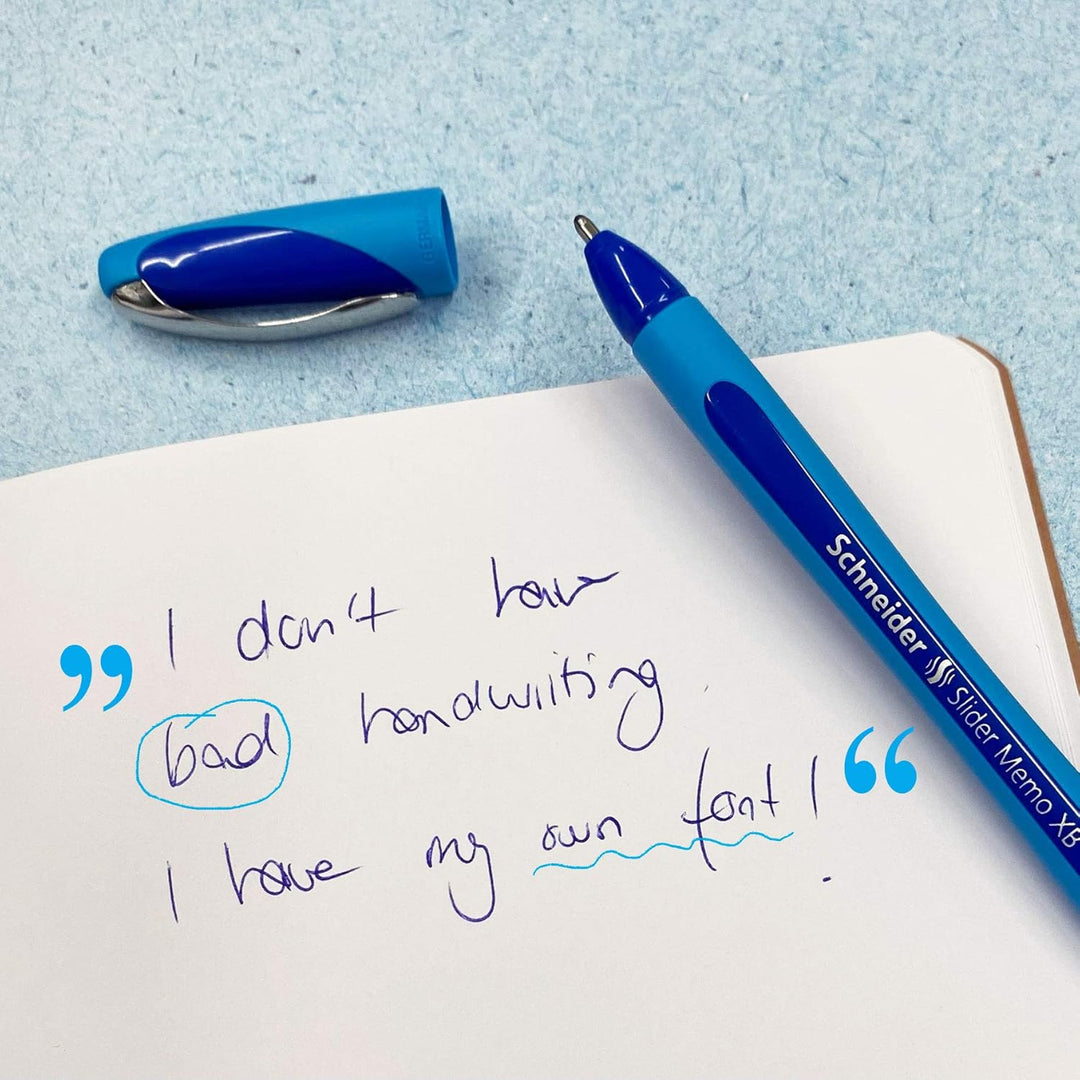 GERM
Schneider Slider Memo XB
” I don't have
bad handwriting.
I have my own font! “